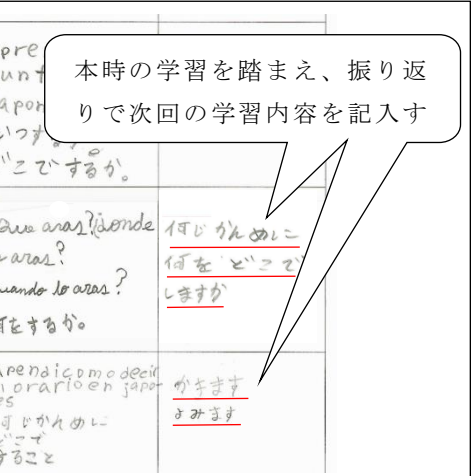 本時の学習を踏まえ、振り返
りで次回の学習内容を記入す
pre
unt
apon
いつす
どこでするか。
Que aras?¿donde
aras?
uando lo aras?
何をするか。
何じかんめに
何を どこで
しますか
Aprendi como decir
horario en japo-
es
何じかんめに
どこで
すること
かきます
よみます